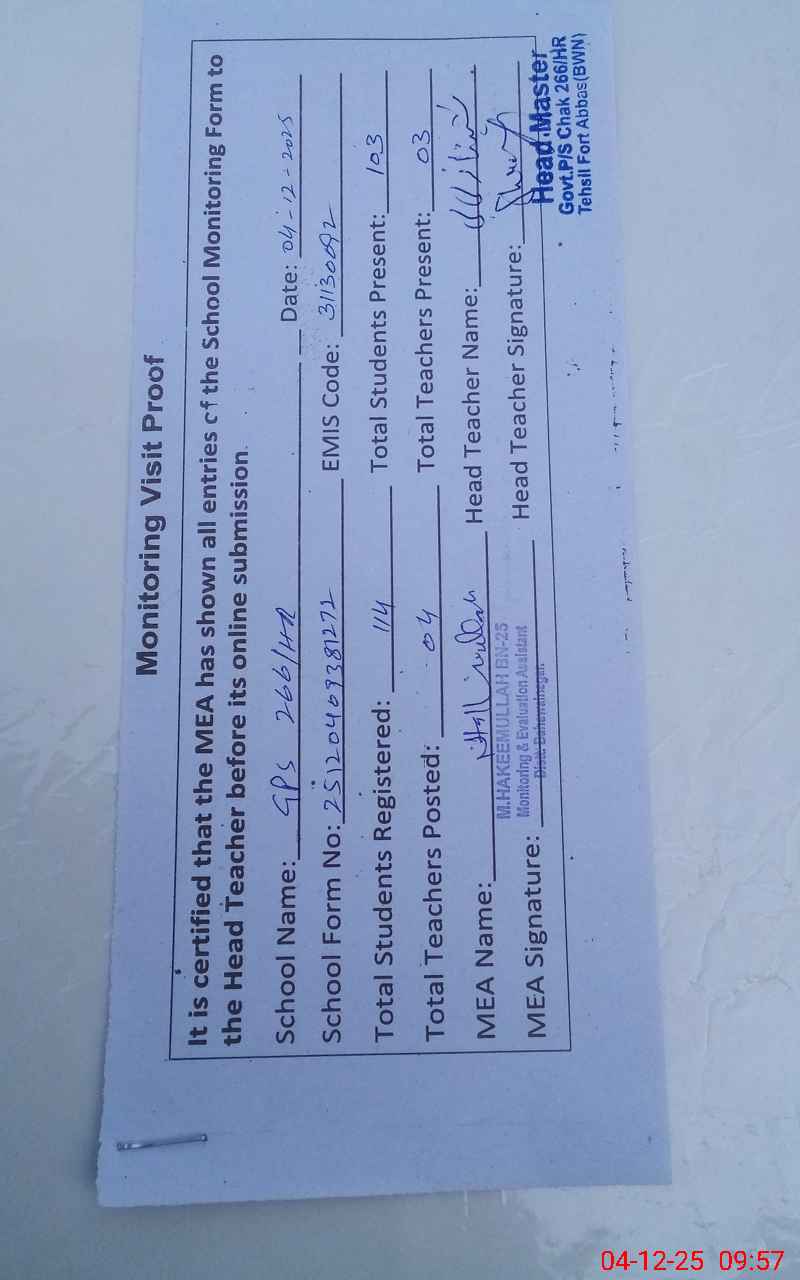 Monitoring Visit Proof
It is certified that the MEA has shown all entries of the School Monitoring Form to
the Head Teacher before its online submission.
School Name: GPS 266/HR Date: 04-12-2025
School Form No: 25120409381272 EMIS Code: 31130092
Total Students Registered: 114 Total Students Present: 103
Total Teachers Posted: 04 Total Teachers Present: 03
MEA Name: Head Teacher Name:
M.HAKEEMULLAH BN-25
Monitoring & Evaluation Assistant
Distt. Bahawalnagar
MEA Signature: Head Teacher Signature:
Head Master
Govt.P/S Chak 266/HR
Tehsil Fort Abbas(BWN)
04-12-25 09:57